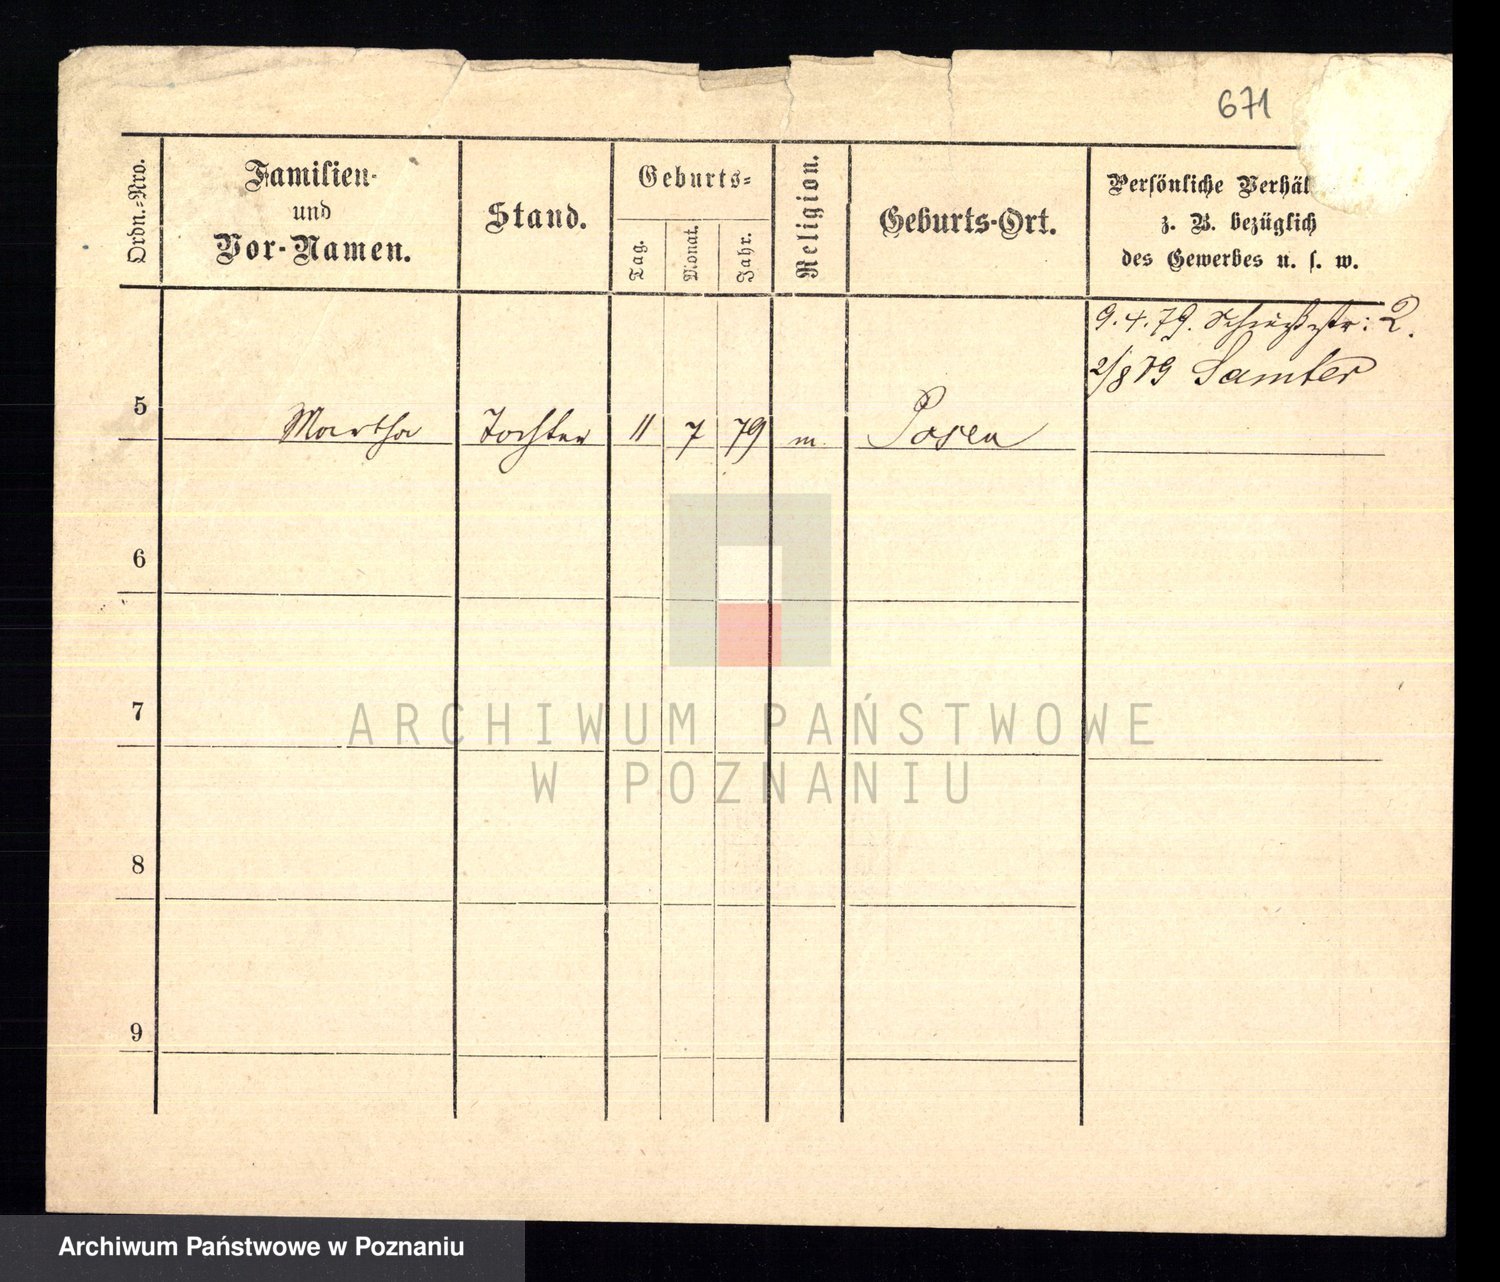 671
Ordn.-Nro.
Familien-
und
Vor-Namen.
Stand.
Geburts-
Tag.
Monat.
Jahr.
Religion.
Geburts-Ort.
Persönliche Verhäl
z. B. bezüglich
des Gewerbes u. s. w.
9.4.79. Schießstr: 2.
2/8 79 Samter
5 Martha Tochter 11 7 79 m. Posen
6
7
8
9
ARCHIWUM PAŃSTWOWE
W POZNANIU
Archiwum Państwowe w Poznaniu